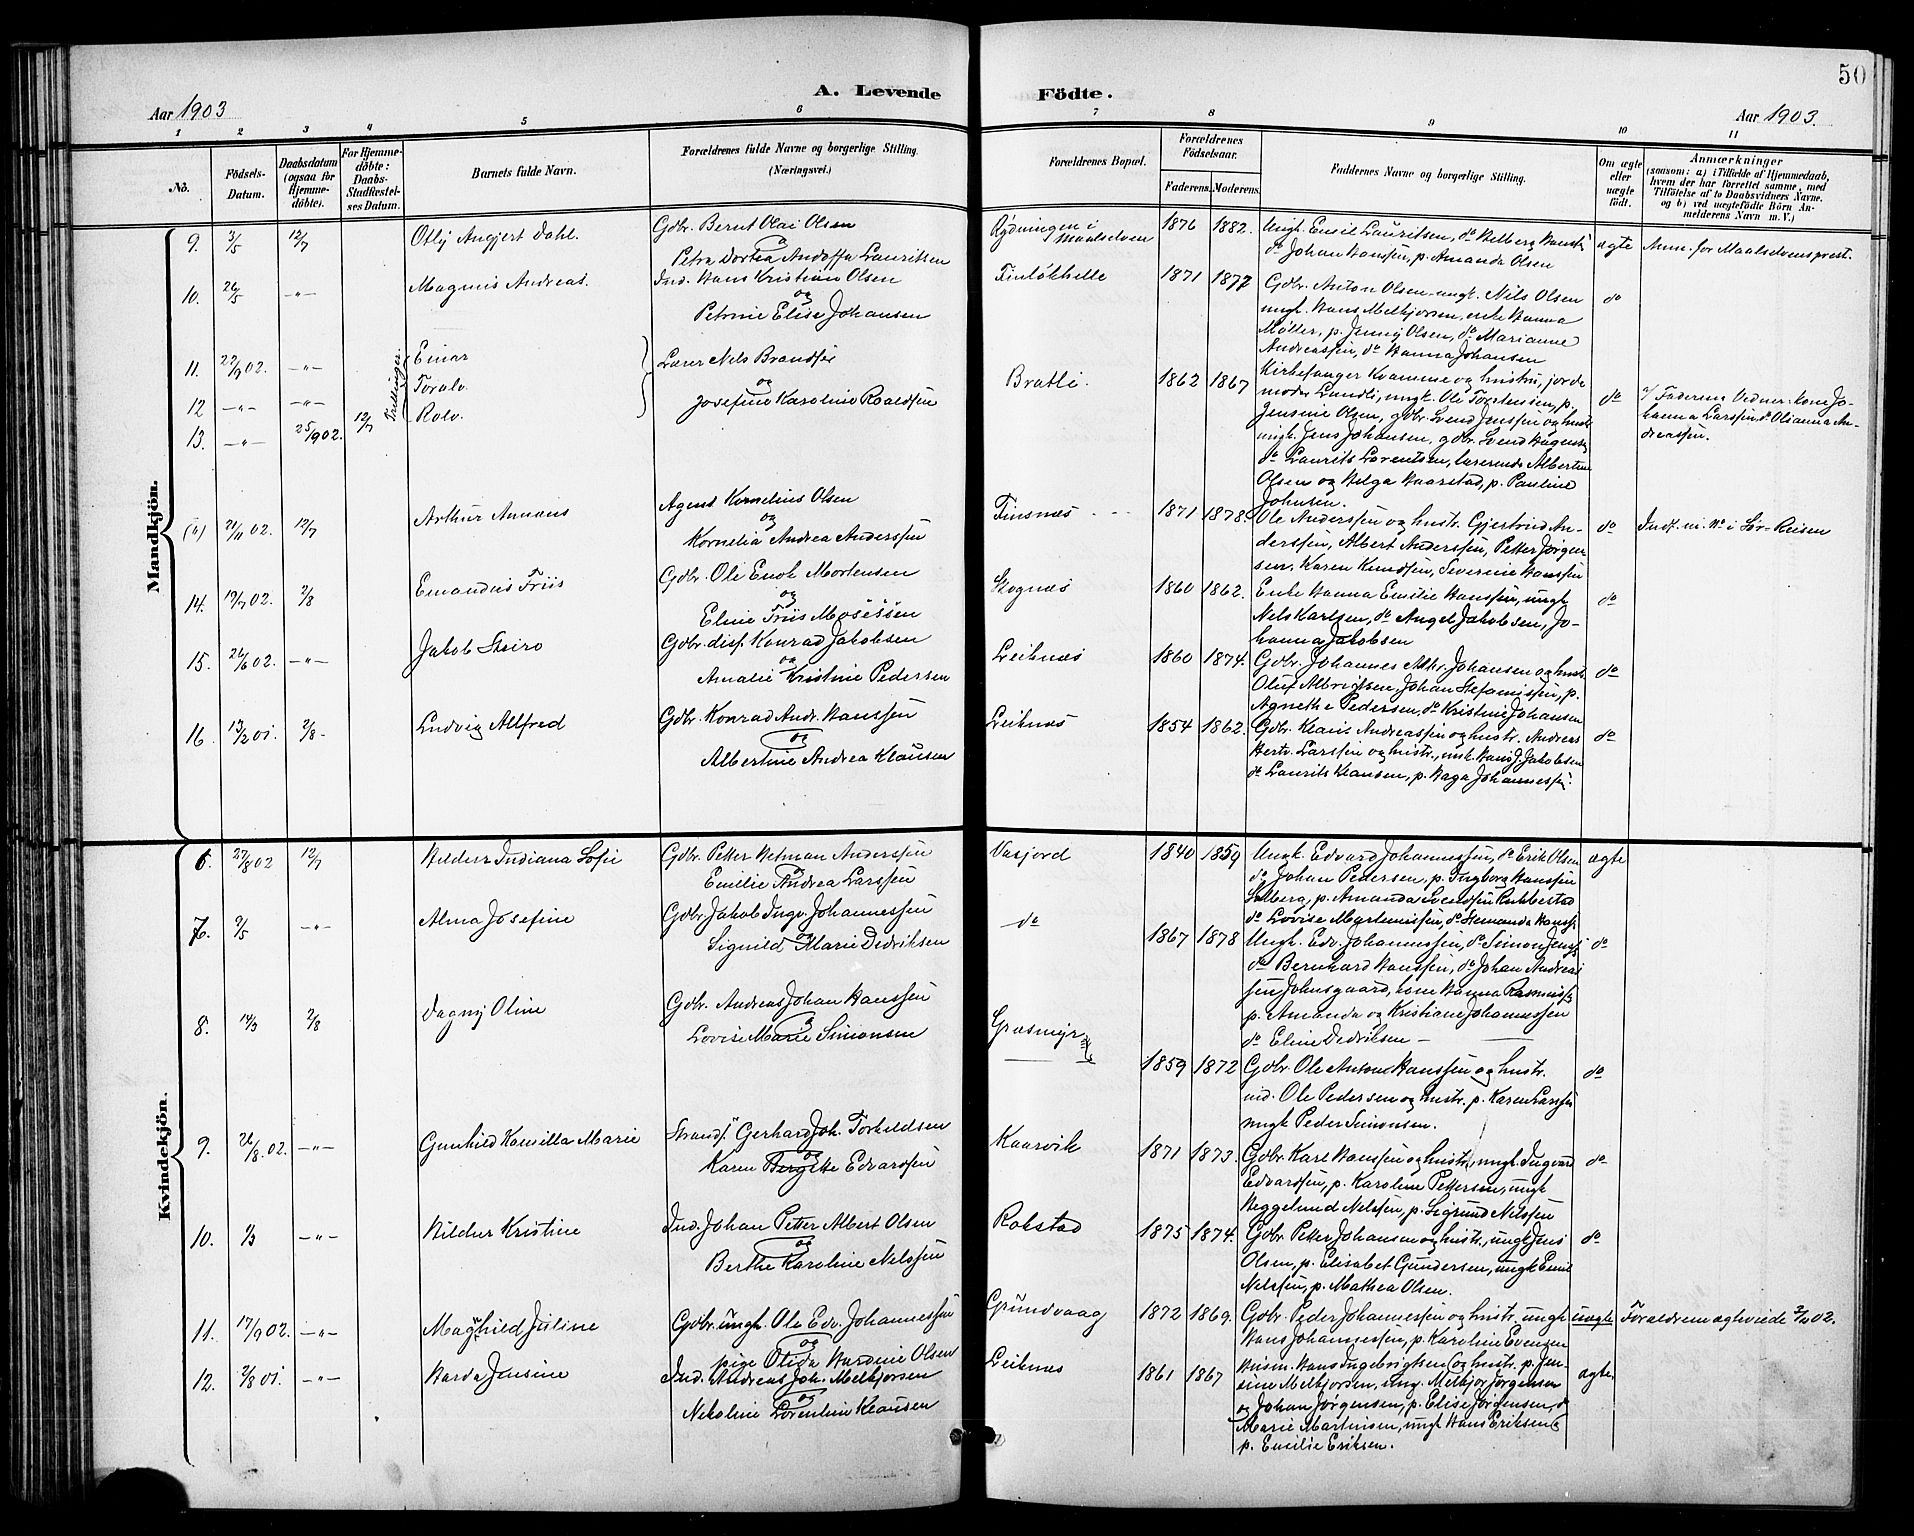 50
A. Levende Födte.
Aar 1903
Aar 1903.
1 2 3 4 5 6 7 8 9 10 11
No.
Födsels-Datum.
Daabsdatum (ogsaa for Hjemmedöbte).
For Hjemmedöbte: Daabs-Stadfæstelses Datum.
Barnets fulde Navn.
Forældrenes fulde Navne og borgerlige Stilling.
(Næringsvei.)
Forældrenes Bopæl.
Forældrenes Födselsaar.
Faderens. Moderens.
Faddernes Navne og borgerlige Stilling.
Om ægte eller uægte födt.
Anmærkninger
(saasom: a) i Tilfælde af Hjemmedaab, hvem der har forrettet samme, med Tilföielse af to Daabsvidners Navne. og b) ved uægtefödte Börn Anmelderens Navn m. V.)
Mandkjön.
9. 3/5 12/7 Otly Angjert Dahl.
Gdbr. Bernt Olai Olsen
og
Petra Dortea Andoffa Lauritsen
Rydningen i Maalselven
1876 1882.
Ungk. Emil Lauritsen, do Helberg Hanss.
do Johan Hanssen, p. Amanda Olsen
ægte
Anm. for Maalselvens prest.
10. 26/5 -"- Magnus Andreas.
Ind. Hans Kristian Olsen
og
Petrine Elise Johansen
Finlökhelle
1871 1877
Gdbr. Anton Olsen, ungk. Nils Olsen
ungk. Hans Melkjorsen, enke Hanna
Møller, p. Jenny Olsen, do Marianne
Andreassen, do Hanna Johansen
do
Trillinger
11. 22/9 02. -"- Einar
12 -"- -"- Toralv
13. -"- 25/9 02. 12/7 Rolv.
Lærer Nels Brandsæ
og
Josefine Karoline Roaldsen
Bratli.
1862 1867
Kirkesanger Kvamme og hustru, jorde
moder Lundli, ungk. Ole Torstensen, p.
Jensine Olsen, gdbr. Svend Jenssen og hustr.
ungk. Jens Johansen, gdbr. Svend Hagensen
do Laurits Lorentsen, lærerinde Albertine
Olsen og Helga Haarstad, p. Pauline
Johnsen.
do
a/ Faderen Vidner: kone Johanna
Larssen, do Olianna Andreassen.
(11) 21/11 02. 12/7 Arthur Amans
Agent Kornelius Olsen
og
Kornelia Andrea Anderssen
Finsnæs
1871 1878.
Ole Anderssen og hustr. Gjertrud Anderssen,
Albert Anderssen, Petter Jørgensen,
Karen Knudsen, Severine Hanssen
do
Indf. u. No i Sør-Reisen
14. 19/7 02. 2/8 Emandus Friis
Gdbr. Ole Enok Mortensen
og
Eline Friis Mosessen
Skognæs
1860 1862.
Enke Hanna Emilie Hanssen, ungk
Nils Karlsen, do Angel Jakobsen, Johanna
Jakobsen
do
15. 26/6 02. -"- Jakob Skeiro
Gdbr. disp. Konrad Jakobsen
og
Amalie Kristine Pedersen
Leiknæs
1860 1874.
Gdbr. Johannes Albr. Johansen og hustr.
Oluf Albrigtsen, Johan Stefanussen, p.
Agnethe Pedersen, do Kristine Johansen
do
16. 13/2 01. 2/8 - Ludvig Alfred
Gdbr. Konrad Andr. Hanssen
og
Albertine Andrea Klausen
Leiknæs
1854 1862.
Gdbr. Klaus Andreassen og hustr. Andreas
Hertr. Larssen og hustr., ungk. Hans J. Jakobsen
do Laurits Klausen, p. Haga Johannessen.
do
Kvindekjön.
6. 27/8 02 12/7 Hildur Indiana Sofie
Gdbr. Petter Hetman Anderssen
og
Emilie Andrea Larssen
Vasjord
1840 1859
Ungk. Edvard Johannessen, do Erik Olsen
do Johan Pedersen, p. Ingborg Hanssen
Solberg, p. Amanda Svendsen Rubbestad
do Lovise Martinussen, do Hemanda Hanss.
ægte
7. 9/5 -"- Alma Josefine
Gdbr. Jakob Ingv. Johannessen
og
Signild Marie Dedriksen
do
1867 1878
Ungk. Edv. Johannessen, do Simon Jenss.
do Bernhard Hanssen, do Johan Andreassen
Johnsgaard, kone Hanna Rasmuss.
p. Amanda og Kristiane Johannessen
do Eline Dedriksen —
do
8. 14/3 2/8 Dagny Oline
Gdbr. Andreas Johan Hanssen
og
Lovise Marie Simonsen
Græsmyr
1859 1872
Gdbr. Ole Anton Hanssen og hustr.
ind. Ole Pedersen og hustr. p. Karen Larssen
ungk Peder Simonsen.
do
9. 26/8. 02. -"- Gunhild Kamilla Marie
Strands. Gerhard Joh. Torkildsen
og
Karen Bergitte Edvardsen
Kaarvik
1871 1873.
Gdbr. Karl Hanssen og hustr., ungk. Ingvard
Edvardsen, p. Karoline Pettersen, ungk
Heggelund Nilssen, p. Sigrund Nilssen
do
10. 1/3 -"- Hildur Kristine
Ind. Johan Petter Albert Olsen
og
Berthe Karoline Nilssen
Rokstad
1875 1874.
Gdbr. Petter Johansen og hustr., ungk. Jens
Olsen, p. Elisabet Gundersen, ungk Emil
Nilssen, p. Mathea Olsen.
do
11. 17/9 02. -"- Maghild Juline
Gdbr. ungk. Ole Edv. Johannessen
og
pige Otida Hardine Olsen
Grundvaag
1872 1869.
Gdbr. Peder Johannessen og hustr. ungk
Hans Johannessen, p. Karoline Evensen
uægte
Forældrene ægteviede 2/10 02.
12. 2/8 01. -"- Harda Jensine
Ind. Andreas Joh. Melkjorsen
og
Nikoline Lorentine Klausen
Leiknæs
1861 1867
Husm. Hans Ingebrigtsen og hustr. p. Jensine
Melkjorsen, ung. Melkjor Jørgensen
og Johan Jørgensen, p. Elise Jørgensen, do
Marie Martinsen, ungk Hans Eriksen
p. Emilie Eriksen.
ægte.